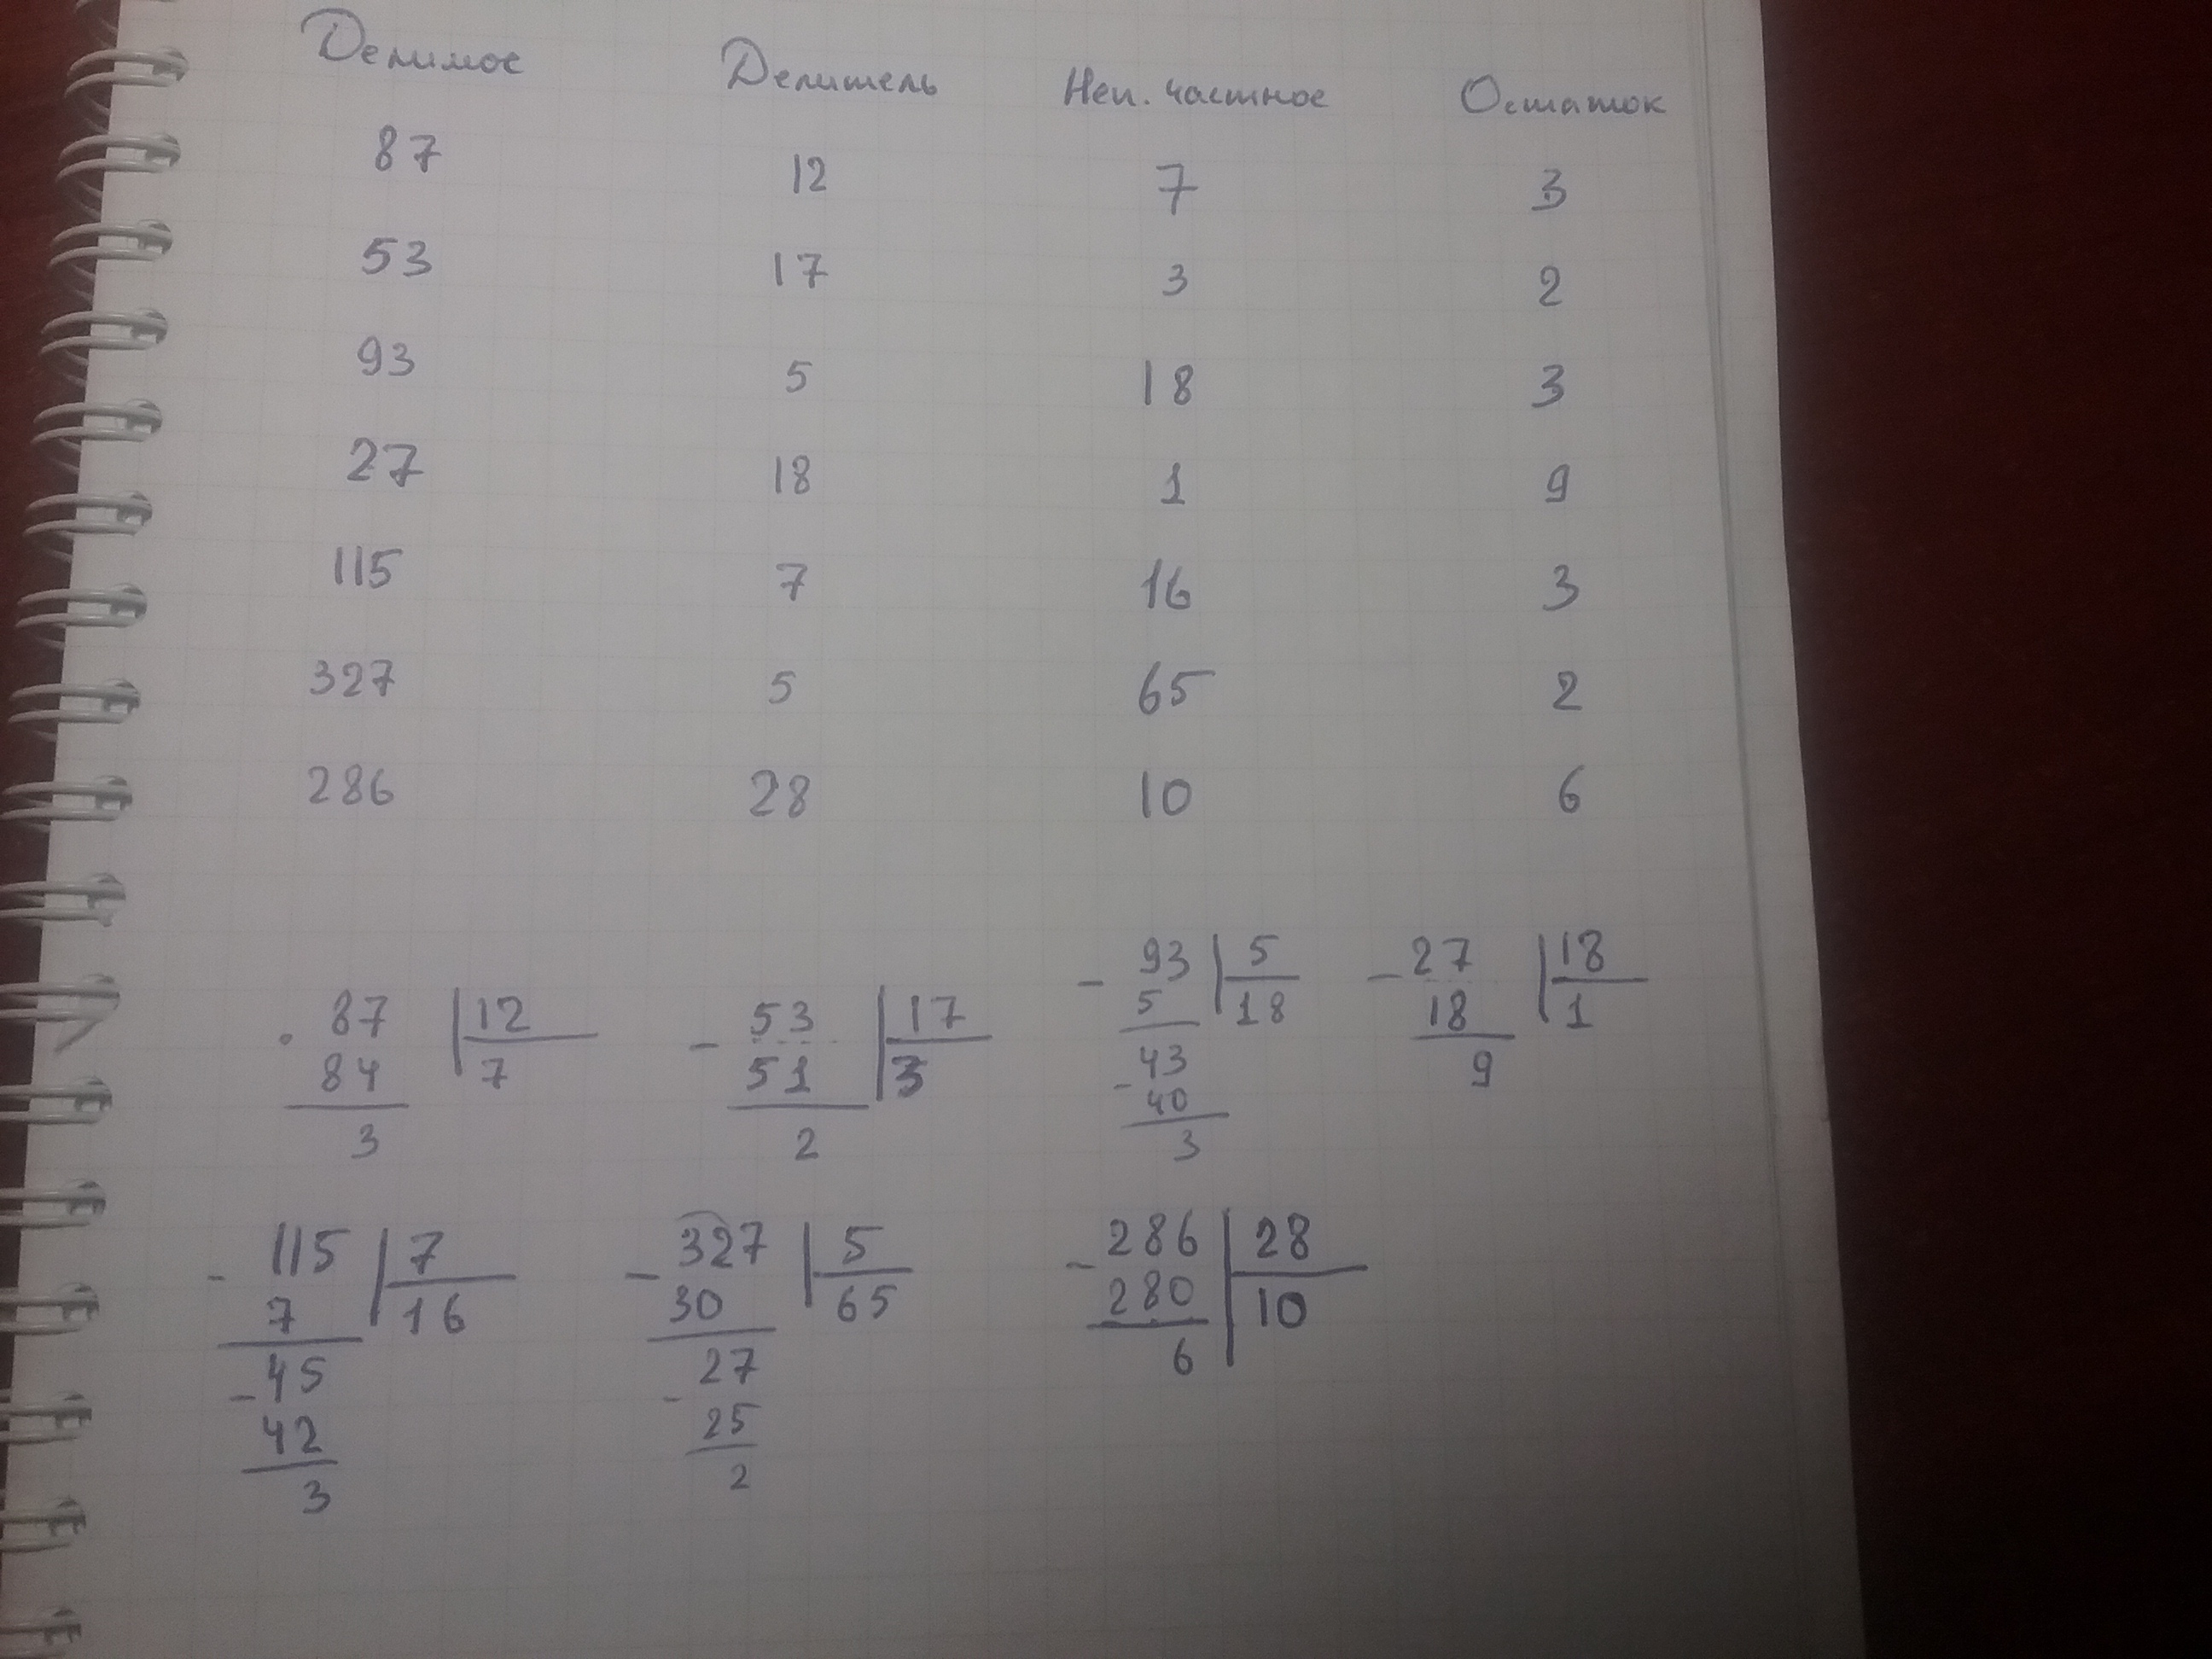 Делимое Делитель Неп. частное Остаток
87 12 7 3
53 17 3 2
93 5 18 3
27 18 1 9
115 7 16 3
327 5 65 2
286 28 10 6
87 12
84 7
3
- 53 17
51 3
2
- 93 5
5 18
43
- 40
3
- 27 18
18 1
9
- 115 7
7 16
- 45
42
3
- 327 5
30 65
27
- 25
2
- 286 28
280 10
6